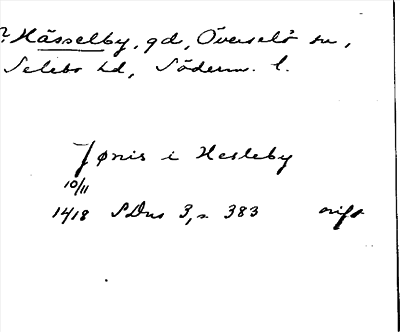 ? Hässelby, gd, Överselö sn,
Selebo hd, Söderm. l.
Jønis i Hesleby
10/11
1418 SDns 3, s. 383 orift